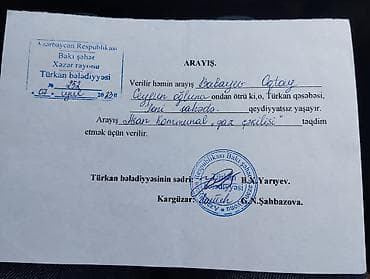 Azərbaycan Respublikası
Bakı şəhər
Xəzər rayonu
Türkan bələdiyyəsi
№ 252
07 iyul 2023
ARAYIŞ.
Verilir həmin arayış Babayev Oqtay
Ceyhun oğluna ondan ötrü ki,o, Türkan qəsəbəsi,
Yeni sahədə qeydiyyatsız yaşayır.
Arayış "kommunal, qaz çəkilişi" təqdim
etmək üçün verilir.
Türkan bələdiyyəsinin sədri: B.X.Yarıyev.
Kargüzar: G.N.Şahbazova.
Respublikası Bakı şəhər
Türkan
bələdiyyəsi